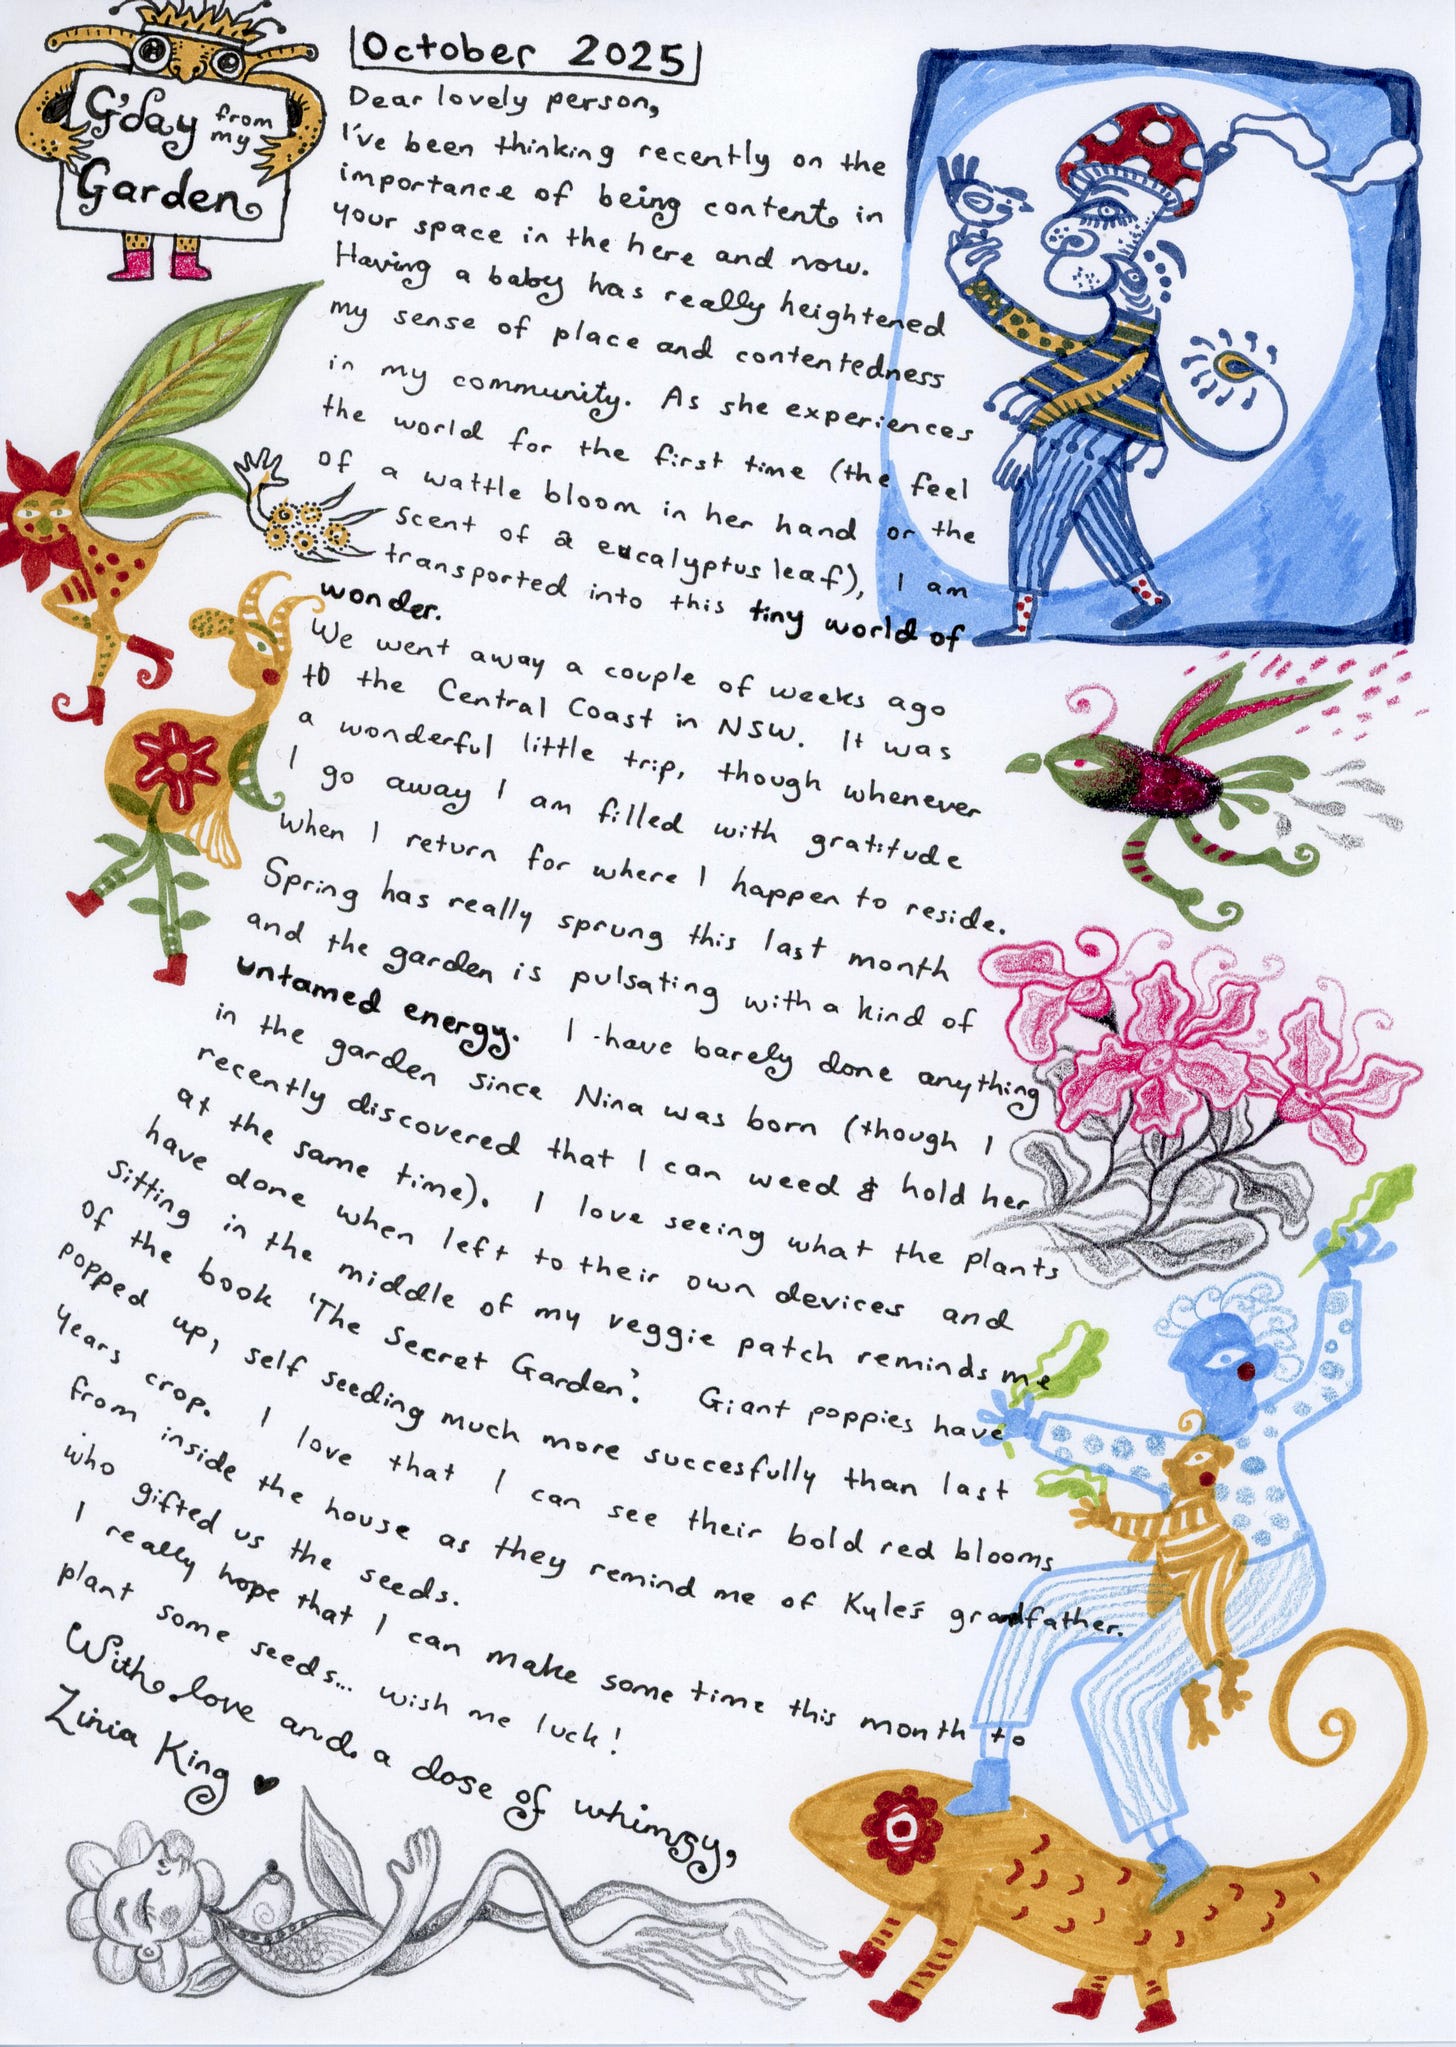 G'day from my
Garden
October 2025
Dear lovely person,
I've been thinking recently on the
importance of being content in
your space in the here and now.
Having a baby has really heightened
my sense of place and contentedness
in my community. As she experiences
the world for the first time (the feel
of a wattle bloom in her hand or the
scent of a eucalyptus leaf), I am
transported into this tiny world of
wonder.
We went away a couple of weeks ago
to the Central Coast in NSW. It was
a wonderful little trip, though whenever
I go away I am filled with gratitude
when I return for where I happen to reside.
Spring has really sprung this last month
and the garden is pulsating with a kind of
untamed energy. I have barely done anything
in the garden since Nina was born (though I
recently discovered that I can weed & hold her
at the same time). I love seeing what the plants
have done when left to their own devices and
sitting in the middle of my veggie patch reminds me
of the book 'The Secret Garden'. Giant poppies have
popped up, self seeding much more succesfully than last
years crop. I love that I can see their bold red blooms
from inside the house as they remind me of Kyle's grandfather.
who gifted us the seeds.
I really hope that I can make some time this month to
plant some seeds... wish me luck!
With love and a dose of whimsy,
Zinia King